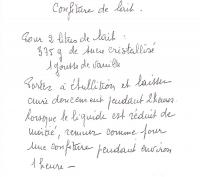 Confiture de lait.
Pour 2 litres de lait :
875 g de sucre cristallisé
1 gousse de vanille
Portez à ébullition et laissez
cuire doucement pendant 2 heures.
lorsque le liquide est réduit de
moitié, remuer comme pour
une confiture pendant environ
1 heure —